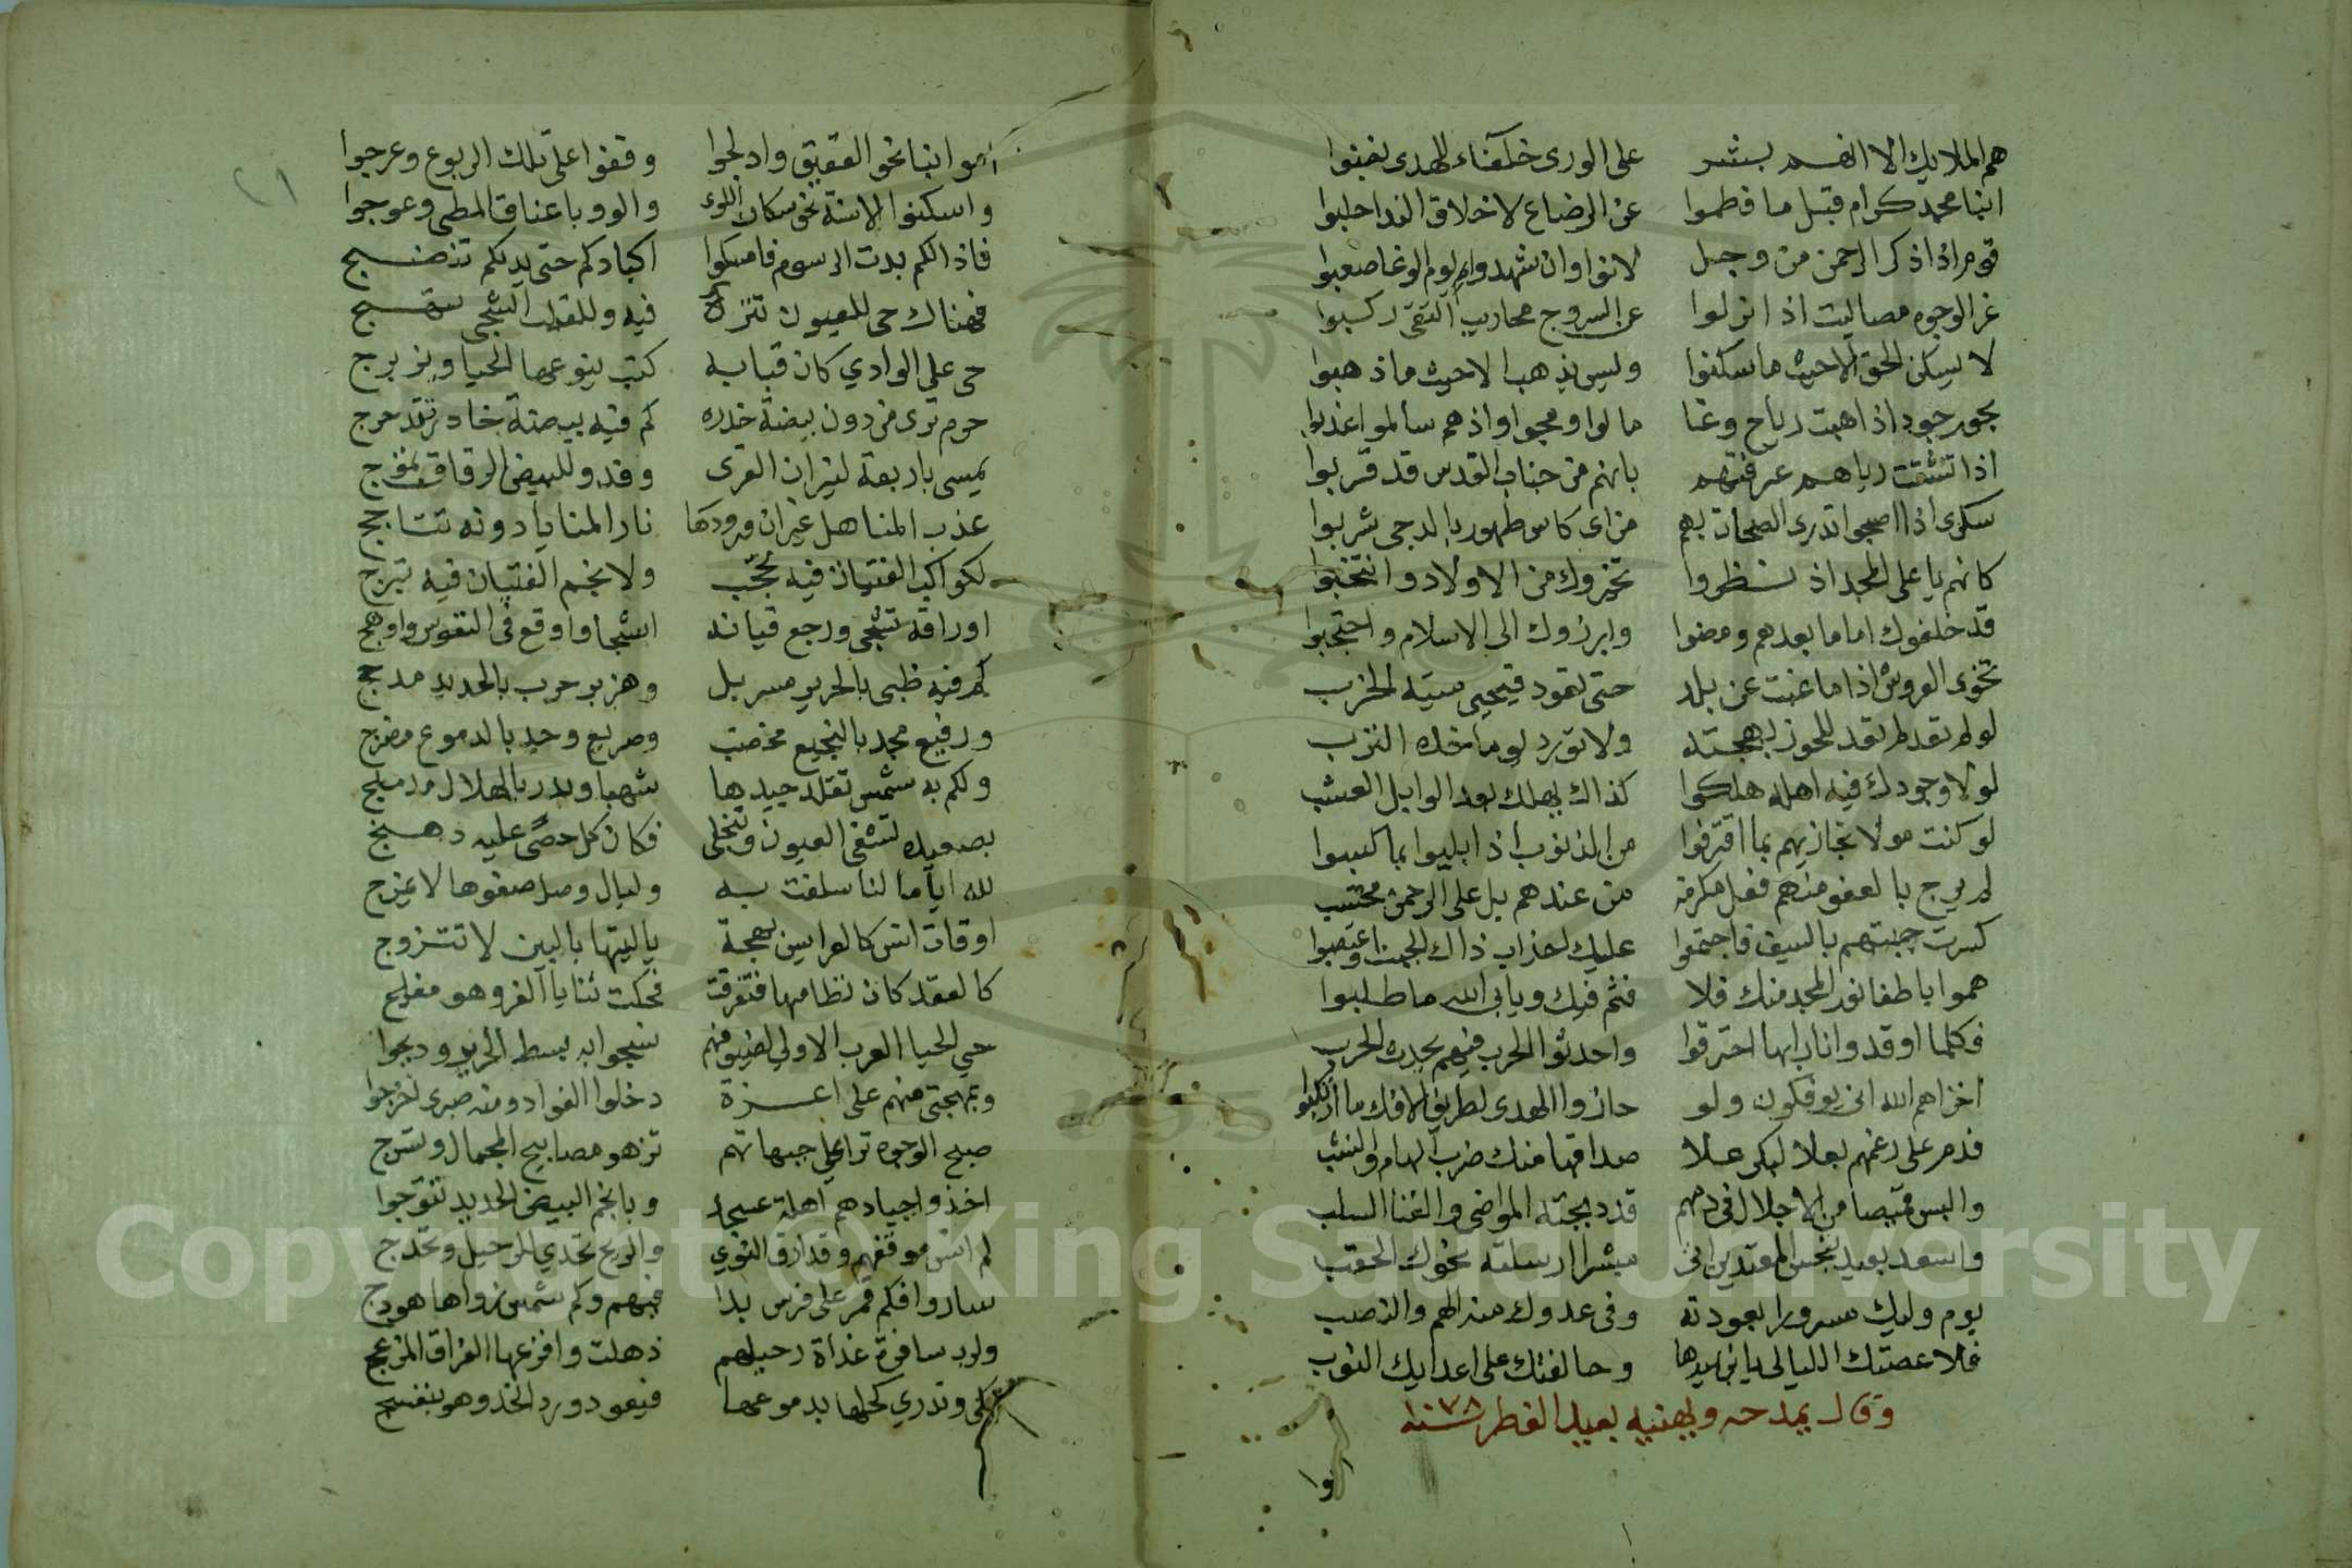 هم الملايك الا انهم بشر على الورى خلفاء للهدى نصبوا
ابنا محمد كرام قبل ما فطموا عن الرضاع لاخلاق الندا حلبوا
قوم اذا ذكر الرحمن من وجل لانوا وان شهدوا يوم الوغا صعبوا
غر الوجوه مصاليت اذا نزلوا عن السروج محاريب التقى ركبوا
لا يسكن الحق الا حيث ما سكنوا وليس يذهب الا حيث ما ذهبوا
بحور جود اذا هبت رياح وغا مالوا وعجوا واذ هم سالموا عذبوا
اذا تنشقت رياهم عرفتهم بانهم من جناب القدس قد قربوا
سكرى اذا اصبحوا تدرى الصحاة بهم من اى كاس طهور بالدجى شربوا
كانهم يا على المجد اذ نظروا تخيروك من الاولاد وانتخبوا
قد خلفوك اماما بعدهم ومضوا وابرزوك الى الاسلام واحتجبوا
تخوى العروش اذا ما غبت عن بلد حتى تعود فيحيى ميته الخرب
لو لم تعد لم تعد للحوز بهجته ولا تورد يوما خده الترب
لولا وجودك فيه اهله هلكوا كذاك يهلك بعد الوابل العشب
لو كنت مولا تجازيهم بما اقترفوا من الذنوب اذا بليوا بما كسبوا
لم يرج بالعفو منهم فعل مكرمة من عندهم بل على الرحمن محتسب
كسرت جبتهم بالسيف فاجتمعوا عليك احزاب ذاك الجبت واعتصبوا
هموا باطفا نور المجد منك فلا فثم فيك ويابى الله ما طلبوا
فكلما اوقدوا نارا بها احترقوا واحدثوا الحرب فيهم يحدث الحرب
اخزاهم الله انى يوفكون ولو حازوا الهدى لطريق الافك ما ارتكبوا
فدم على رغمهم بعلا لبكر علا صداقها منك ضرب الهام والنشب
والبس قميصا من الاجلال في دمهم قد دبجته المواضى والقنا السلب
واسعد بعيد بنحس المعتدين اتى مبشرا ارسلته نحوك الحقب
يوم وليك مسرورا بعودته وفى عدوك منه الهم والنصب
فلا عصتك الليالى يا ابن سيدها وحالفتك على اعدايك النوب
وقال يمدحه ويهنيه بعيد الفطر سنة ٧٨
اموا
٢١
اموا بنا نحو العقيق وادلجوا وقفوا على تلك الربوع وعرجوا
واسكنوا لاسنة نحو سكان اللوى والووا باعناق المطى وعوجوا
فاذا لكم بدت الرسوم فامسكوا اكبادكم حتى يديكم تنضج
فهناك حى للعيون تنزه فيه وللقلب الشجى تهيج
حى على الوادي كان قبابه كتب ينوعها الحيا ويزبرج
حرم ترى من دون بيضة خدره كم فيه بيضة خادر تتدحرج
يمسى باربعة لنيران القرى وقد وللبيض الرقاق تموج
عذب المناهل غير ان ورودها نار المنايا دونه تتاجج
لكواكب الفتيات فيه تحجب ولانجم الفتيان فيه تبرج
اوراقه تشجى ورجع قيانه اشجا واوقع فى النفوس واوهج
كم فيه ظبى بالحرير مسربل وهزبر حرب بالحديد مدجج
ورفيع مجد بالنجيع مخضب وصريع وجد بالدموع مضرج
ولكم به شمس تقلد جيدها شهبا وبدر بالهلال مدملج
بصعيده تشفى العيون وتنجلى فكان كل حصى عليه دهنج
لله اياما لنا سلفت به وليال وصل صفوها لا يمزج
اوقات انس كالعرايس بهجة يا ليتها بالبين لا تتزوج
كالعقد كان نظامها فتفرقت فحكت ثنايا الغر وهو مفلج
حي الحيا العرب الاولى لضيوفهم نسجوا به بسط الحرير ودبجوا
وبمهجتى منهم على اعزة دخلوا الفواد ومنه صبرى اخرجوا
صبح الوجوه ترا على جبهاتهم تزهو مصابيح الجمال وتسرج
اخذوا جيادهم اهلة عسجد وبانجم البيض الحديد تتوجوا
لم انس موقفهم وقد ازف النوى والريح تحدي للرحيل وتحدج
ساروا فكم قمر على فرس بدا فيهم وكم شمس زواها هودج
ولرب سافرة غداة رحيلهم ذهلت وافزعها الفراق المزعج
تبكى وتذري كحلها بدموعها فيعود ورد الخد وهو بنفسج